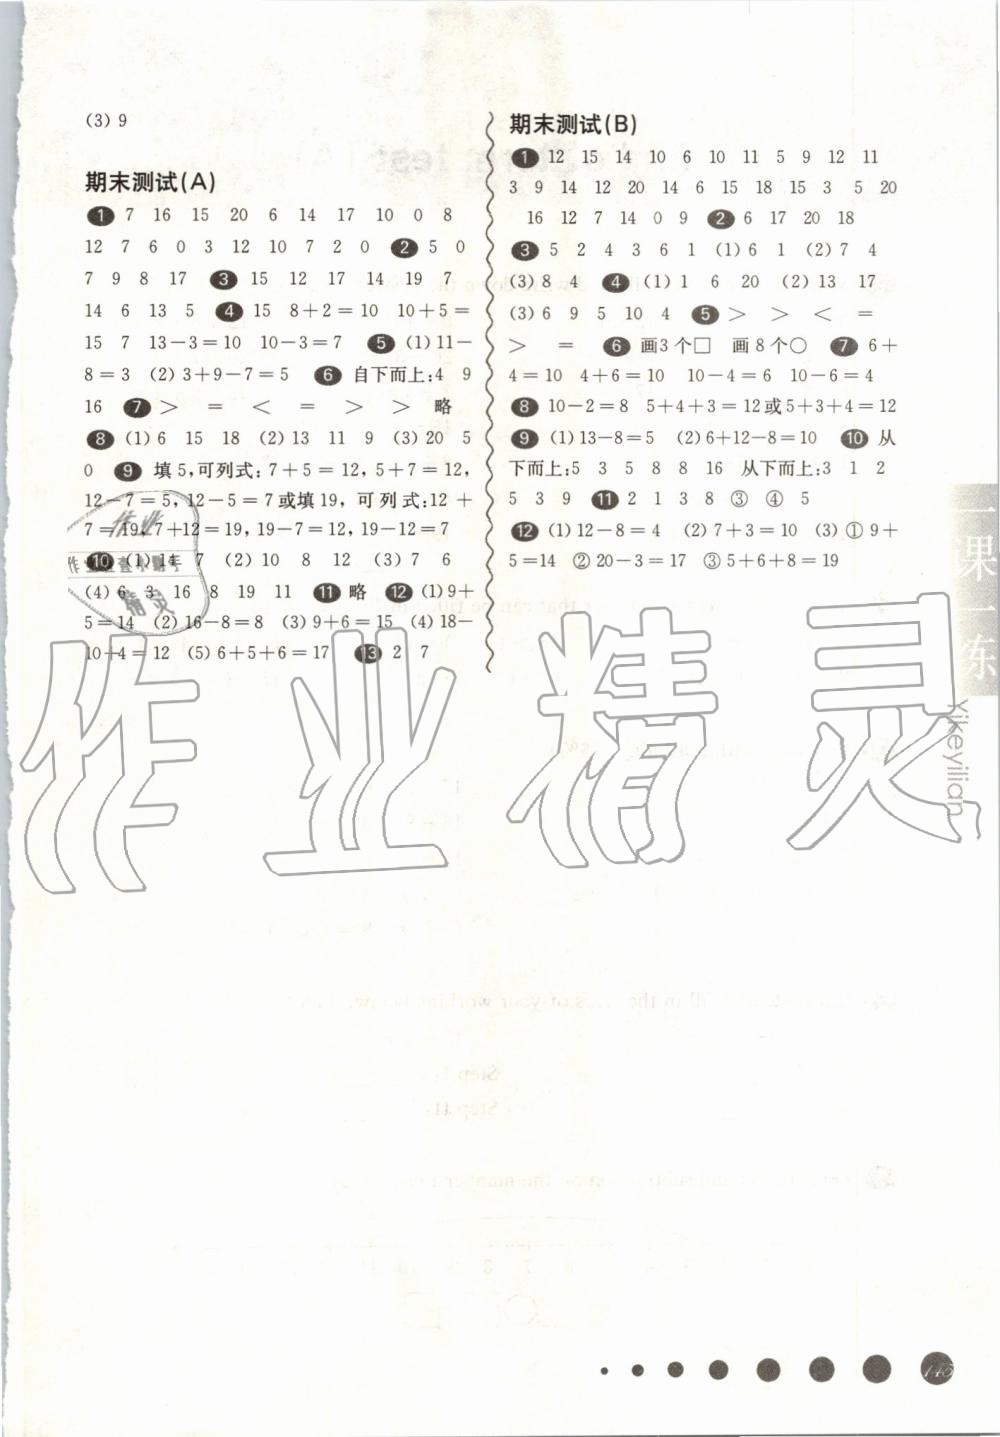 (3) 9
期末测试(A)
❶ 7 16 15 20 6 14 17 10 0 8
12 7 6 0 3 12 10 7 2 0 ❷ 5 0
7 9 8 17 ❸ 15 12 17 14 19 7
14 6 13 5 ❹ 15 8+2=10 10+5=
15 7 13-3=10 10-3=7 ❺ (1) 11-
8=3 (2) 3+9-7=5 ❻ 自下而上:4 9
16 ❼ > = < = > > 略
❽ (1) 6 15 18 (2) 13 11 9 (3) 20 5
0 ❾ 填5,可列式:7+5=12,5+7=12,
12-7=5,12-5=7或填19,可列式:12+
7=19,7+12=19,19-7=12,19-12=7
❿ (1) 14 7 (2) 10 8 12 (3) 7 6
(4) 6 3 16 8 19 11 ⓫ 略 ⓬ (1) 9+
5=14 (2) 16-8=8 (3) 9+6=15 (4) 18-
10+4=12 (5) 6+5+6=17 ⓭ 2 7
期末测试(B)
❶ 12 15 14 10 6 10 11 5 9 12 11
3 9 14 12 20 14 6 15 18 15 3 5 20
16 12 7 14 0 9 ❷ 6 17 20 18
❸ 5 2 4 3 6 1 (1) 6 1 (2) 7 4
(3) 8 4 ❹ (1) 1 6 20 (2) 13 17
(3) 6 9 5 10 4 ❺ > > < =
> = ❻ 画3个□ 画8个○ ❼ 6+
4=10 4+6=10 10-4=6 10-6=4
❽ 10-2=8 5+4+3=12或5+3+4=12
❾ (1) 13-8=5 (2) 6+12-8=10 ❿ 从
下而上:5 3 5 8 8 16 从下而上:3 1 2
5 3 9 ⓫ 2 1 3 8 ③ ④ 5
⓬ (1) 12-8=4 (2) 7+3=10 (3) ① 9+
5=14 ② 20-3=17 ③ 5+6+8=19
一课一练
Yikeyilian
作业
精灵
作业精灵
145